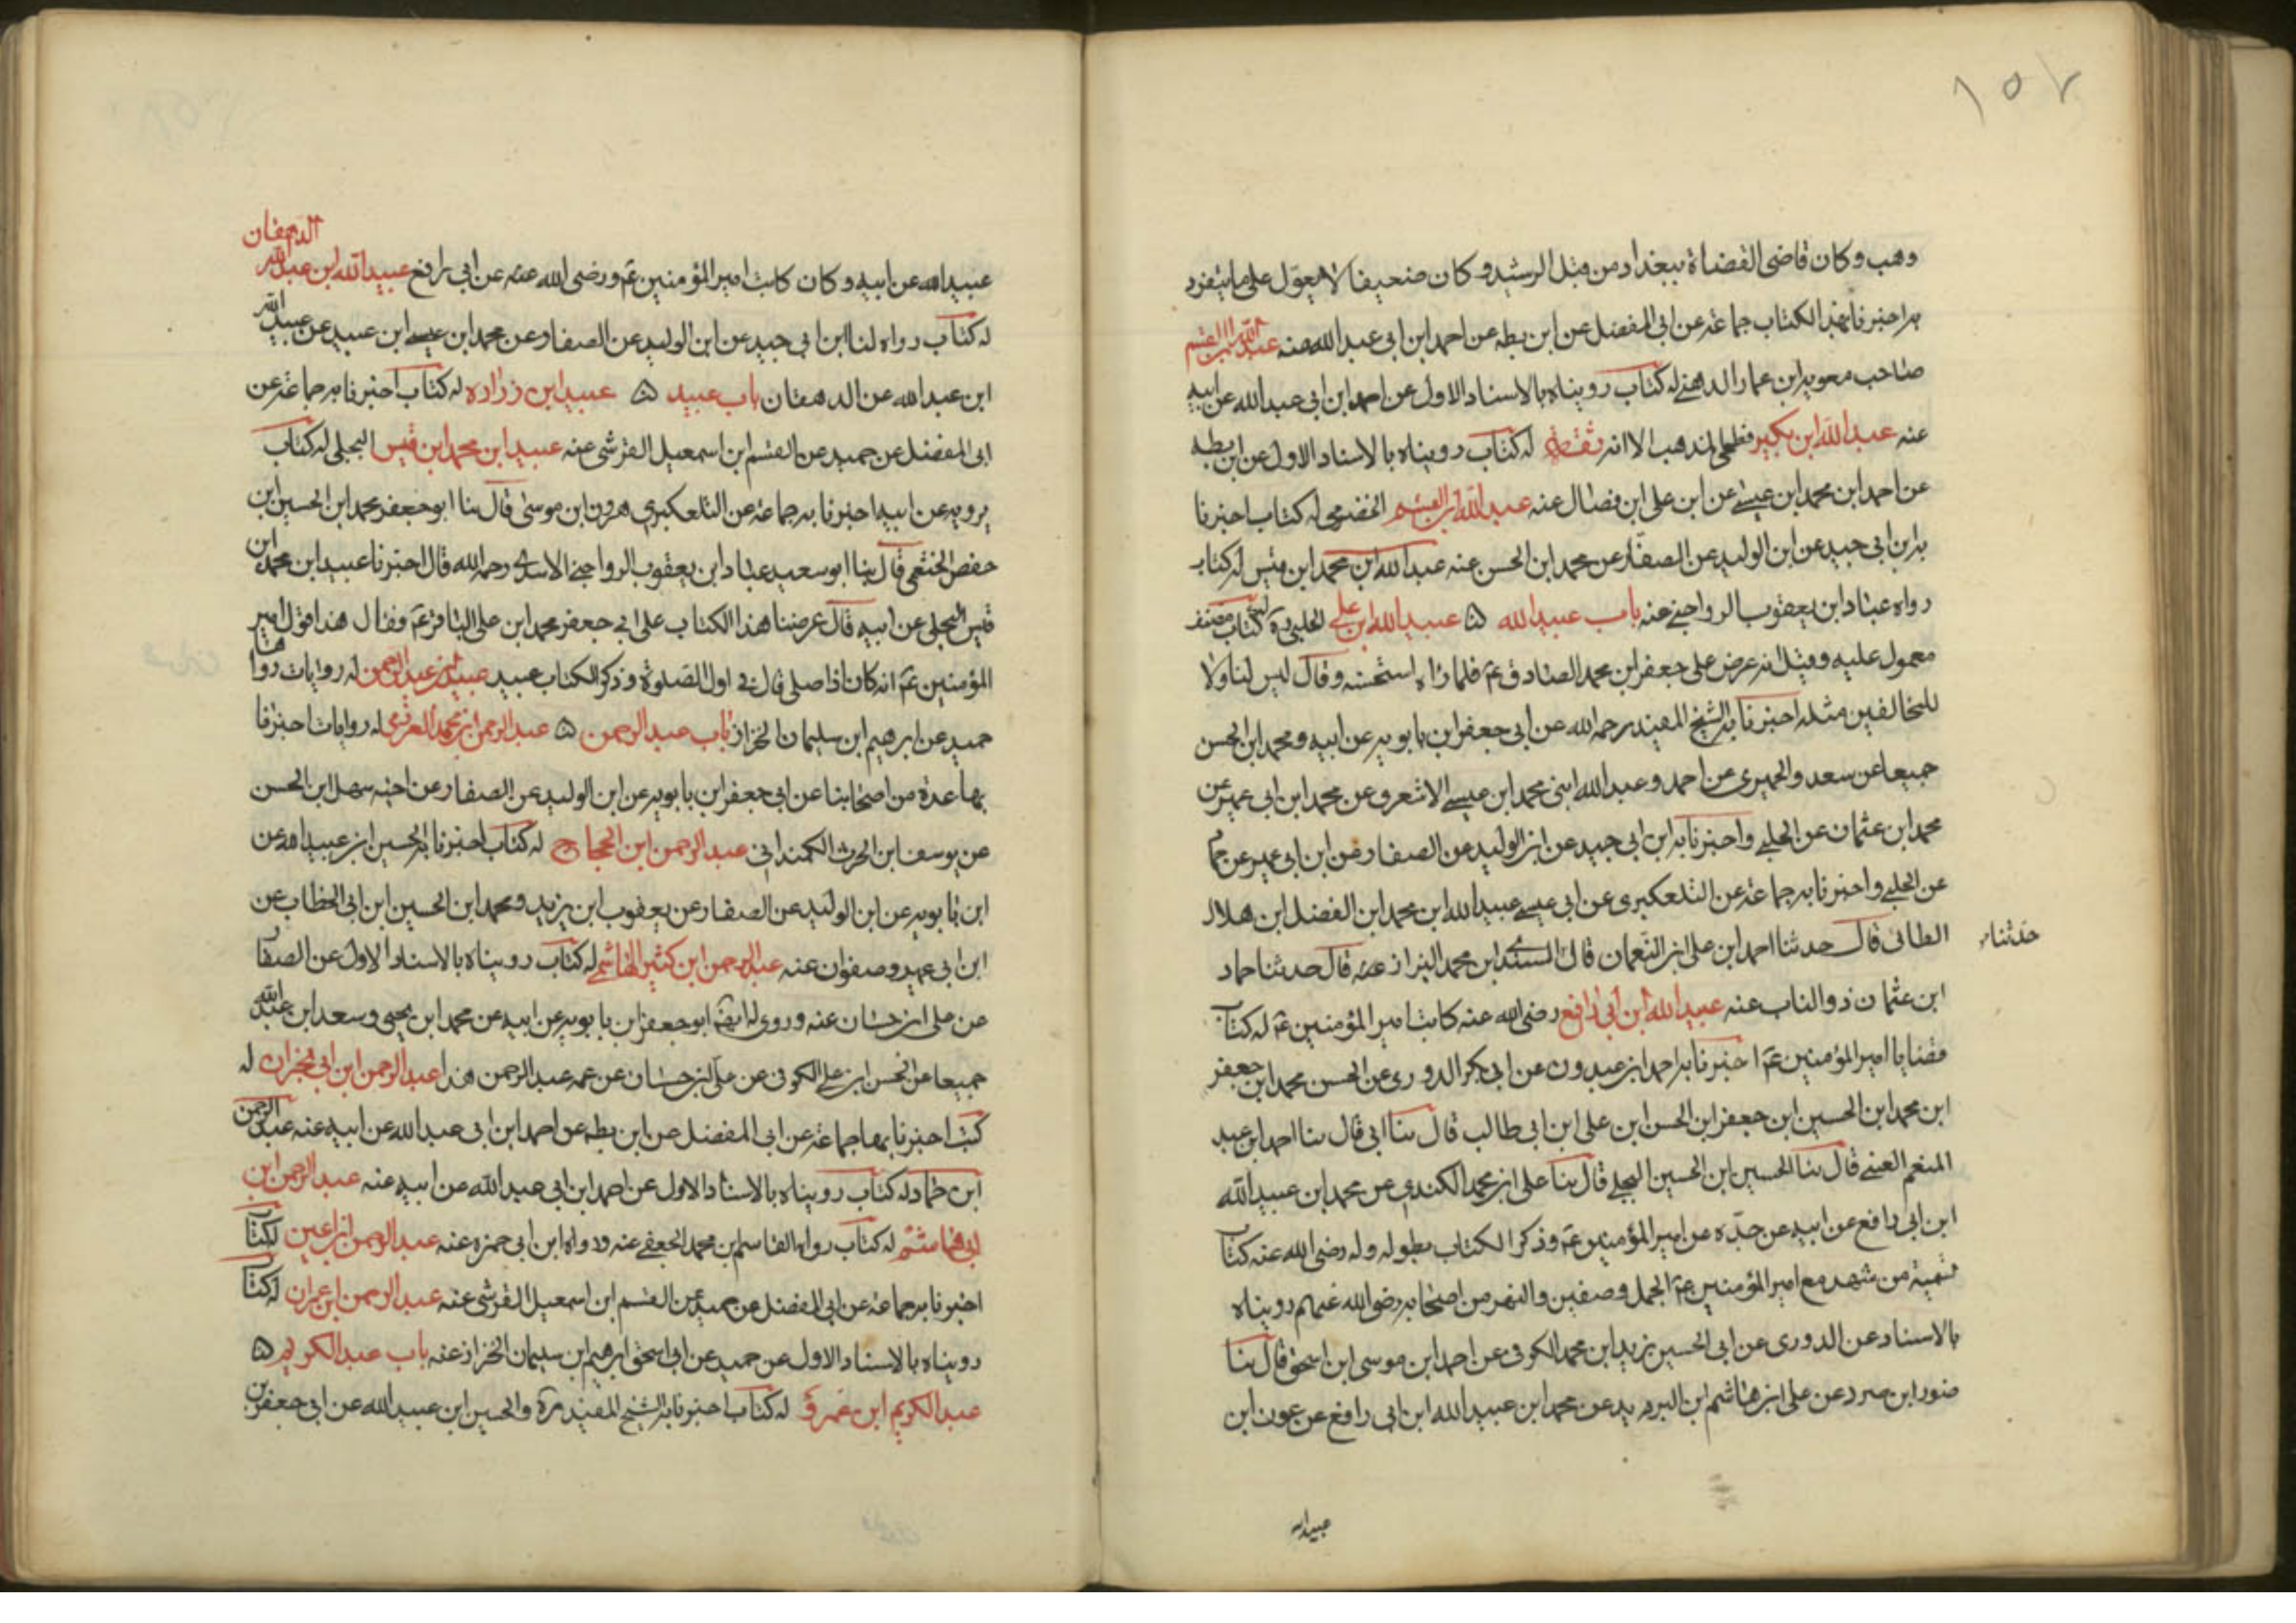 ١٥٧
وهب وكان قاضى القضاة ببغداد من قبل الرشيد وكان ضعيفا لا يعوّل على ما يتفرد
به اخبرنا بهذا الكتاب جماعة عن ابى المفضل عن ابن بطه عن احمد ابن ابى عبدالله عنه عبدالله ابن القسم
صاحب معويه ابن عمار الدهنى له كتاب رويناه بالاسناد الاول عن احمد ابن ابى عبدالله عن ابيه
عنه عبدالله ابن بكير فطحى المذهب الا انه ثقة له كتاب رويناه بالاسناد الاول عن ابن بطه
عن احمد ابن محمد ابن عيسى عن ابن على ابن فضال عنه عبدالله ابن القسم الحضرمى له كتاب اخبرنا
به ابن ابى جيد عن ابن الوليد عن الصفار عن محمد ابن الحسن عنه عبدالله ابن محمد ابن قيس له كتاب
رواه عباد ابن يعقوب الرواجنى عنه باب عبيدالله ۵ عبيدالله ابن على الحلبى له كتاب مصنف
معمول عليه وقيل انه عرض على جعفر ابن محمد الصادق عم فلما راه استحسنه وقال ليس لهؤلا
للمخالفين مثله اخبرنا به الشيخ المفيد رحمه الله عن ابى جعفر ابن بابويه عن ابيه ومحمد ابن الحسن
جميعا عن سعد والحميرى عن احمد وعبدالله ابنى محمد ابن عيسى الاشعرى عن محمد ابن ابى عمير عن
محمد ابن عثمان عن الحلبى واخبرنا به ابن ابى جيد عن ابن الوليد عن الصفار عن ابن ابى عمير عن حما
عن الحلبى واخبرنا به جماعة عن التلعكبرى عن ابى عيسى عبيدالله ابن محمد ابن الفضل ابن هلال
الطائى قال حدثنا احمد ابن على ابن النعمان قال السندى ابن محمد البزاز عنه قال حدثنا حماد
حدثنا
ابن عثمان ذو الناب عنه عبيدالله ابن ابى رافع رضى الله عنه كاتب امير المؤمنين عم له كتاب
قضايا امير المؤمنين عم اخبرنا به احمد ابن عبدون عن ابى بكر الدورى عن الحسن محمد ابن جعفر
ابن محمد ابن الحسين ابن جعفر ابن الحسن ابن على ابن ابى طالب قال ثنا ابى قال ثنا احمد ابن عبد
المنعم العينى قال ثنا الحسين ابن الحسين البجلى قال ثنا على ابن محمد الكندى عن محمد ابن عبيدالله
ابن ابى رافع عن ابيه عن جدّه عن امير المؤمنين عم وذكر الكتاب بطوله وله رضى الله عنه كتاب
تسمية من شهد مع امير المؤمنين عم الجمل وصفين والنهر من اصحابه رضوا الله عنهم رويناه
بالاسناد عن الدورى عن ابى الحسين زيد ابن محمد الكوفى عن احمد ابن موسى ابن اسحق قال ثنا
ضرار ابن صرد عن على ابن هاشم ابن البريد عن محمد ابن عبيدالله ابن ابى رافع عن عون ابن
عبيدالله
عبيدالله عن ابيه وكان كاتب امير المؤمنين عم ورضى الله عنه عن ابى رافع عبيدالله ابن عبدالله الدهقان
له كتاب رواه لنا ابن ابى جيد عن ابن الوليد عن الصفار عن محمد ابن عيسى ابن عبيد عن عبيدالله
ابن عبدالله عن الدهقان باب عبيد ۵ عبيد ابن زراده له كتاب اخبرنا به جماعة عن
ابى المفضل عن حميد عن القسم ابن اسمعيل القرشى عنه عبيد ابن محمد ابن قيس البجلى له كتاب
يرويه عن ابيه اخبرنا به جماعة عن التلعكبرى هرون ابن موسى قال ثنا ابو جعفر محمد ابن الحسين ابن
حفص الخثعمى قال ثنا ابو سعيد عباد ابن يعقوب الرواجنى الاسدى رحمه الله قال اخبرنا عبيد ابن محمد ابن
قيس البجلى عن ابيه قال عرضنا هذا الكتاب على ابى جعفر محمد ابن على الباقر عم فقال هذا قول امير
المؤمنين عم انه كان اذا صلى قال فى اول الصلوة وذكر الكتاب عبيد عبيد ابن عبد الرحمن له روايات رواها
حميد عن ابرهيم ابن سليمان الخزاز باب عبد الرحمن ۵ عبد الرحمن ابن محمد العرزمى له روايات اخبرنا
بها عدة من اصحابنا عن ابى جعفر ابن بابويه عن ابن الوليد عن الصفار عن اخيه سهل ابن الحسن
عن يوسف ابن الحرث الكمندانى عبد الرحمن ابن الحجاج له كتاب اخبرنا به الحسين ابن عبيدالله عن
ابن بابويه عن ابن الوليد عن الصفار عن يعقوب ابن يزيد ومحمد ابن الحسين ابن ابى الخطاب عن
ابن ابى عمير وصفوان عنه عبد الرحمن ابن كثير الهاشمى له كتاب رويناه بالاسناد الاول عن الصفا
عن على ابن حسان عنه وروى له ابو جعفر ابن بابويه عن ابيه عن محمد ابن يحيى وسعد ابن عبدالله
جميعا عن الحسن ابن على الكوفى عن على ابن حسان عن عمه عبد الرحمن هذا عبد الرحمن ابن ابى نجران له
كتب اخبرنا بها جماعة عن ابى المفضل عن ابن بطه عن احمد ابن ابى عبدالله عن ابيه عنه عبد الرحمن
ابن حماد له كتاب رويناه بالاسناد الاول عن احمد ابن ابى عبدالله عن ابيه عنه عبد الرحمن ابن
ابى هاشم له كتاب رواه القاسم ابن محمد الجعفى عنه ورواه ابن ابى حمزه عنه عبد الرحمن ابن اعين له كتا
اخبرنا به جماعة عن ابى المفضل عن حميد عن القسم ابن اسمعيل القرشى عنه عبد الرحمن ابن عمران له كتا
رويناه بالاسناد الاول عن حميد عن ابى اسحق ابرهيم ابن سليمان الخزاز عنه باب عبد الكريم ۵
عبد الكريم ابن عمرو له كتاب اخبرنا به الشيخ المفيد ره والحسين ابن عبيدالله عن ابى جعفر ابن